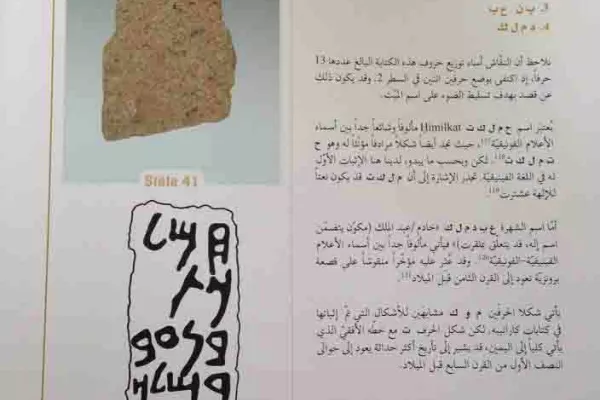 3. ب ن ع ب
4. د م ل ك
نلاحظ أن النقّاش أساء توزيع حروف هذه الكتابة البالغ عددها 13
حرفاً، إذ اكتفى بوضع حرفَين اثنين في السطر 2. وقد يكون ذلك
عن قصد بهدف تسليط الضوء على اسم الميّت.
يُعتبر اسم ح م ل ك ت Himilkat مألوفاً وشائعاً جداً بين أسماء
الأعلام الفونيقيّة، حيث نجد أيضاً شكلاً مرادفاً مؤنّثاً له وهو ح
ت م ل ك ت. لكن وبحسب ما يبدو، لدينا هنا الإثبات الأوّل
له في اللغة الفينيقية. تجدر الإشارة إلى أن م ل ك ت قد يكون نعتاً
للإلهة عشترت.
أمّا اسم الشهرة ع ب د م ل ك («خادم/عبد الملك (مكوّن يتضمّن
اسم إله، قد يتعلّق بملقرت)») فيأتي مألوفاً جداً بين أسماء الأعلام
الفينيقية–الفونيقيّة. وقد عُثر عليه مؤخّراً منقوشاً على قصعة
برونزيّة تعود إلى القرن الثامن قبل الميلاد.
يأتي شكلا الحرفَين م و ك مشابهَين للأشكال التي تمّ إثباتها
في كتابات كاراتيبه. لكن شكل الحرف ت مع خطّه الأفقيّ الذي
يأتي كلياً إلى اليمين، قد يشير إلى تأريخ أكثر حداثة يعود إلى حوالى
النصف الأول من القرن السابع قبل الميلاد.
Stèle 41